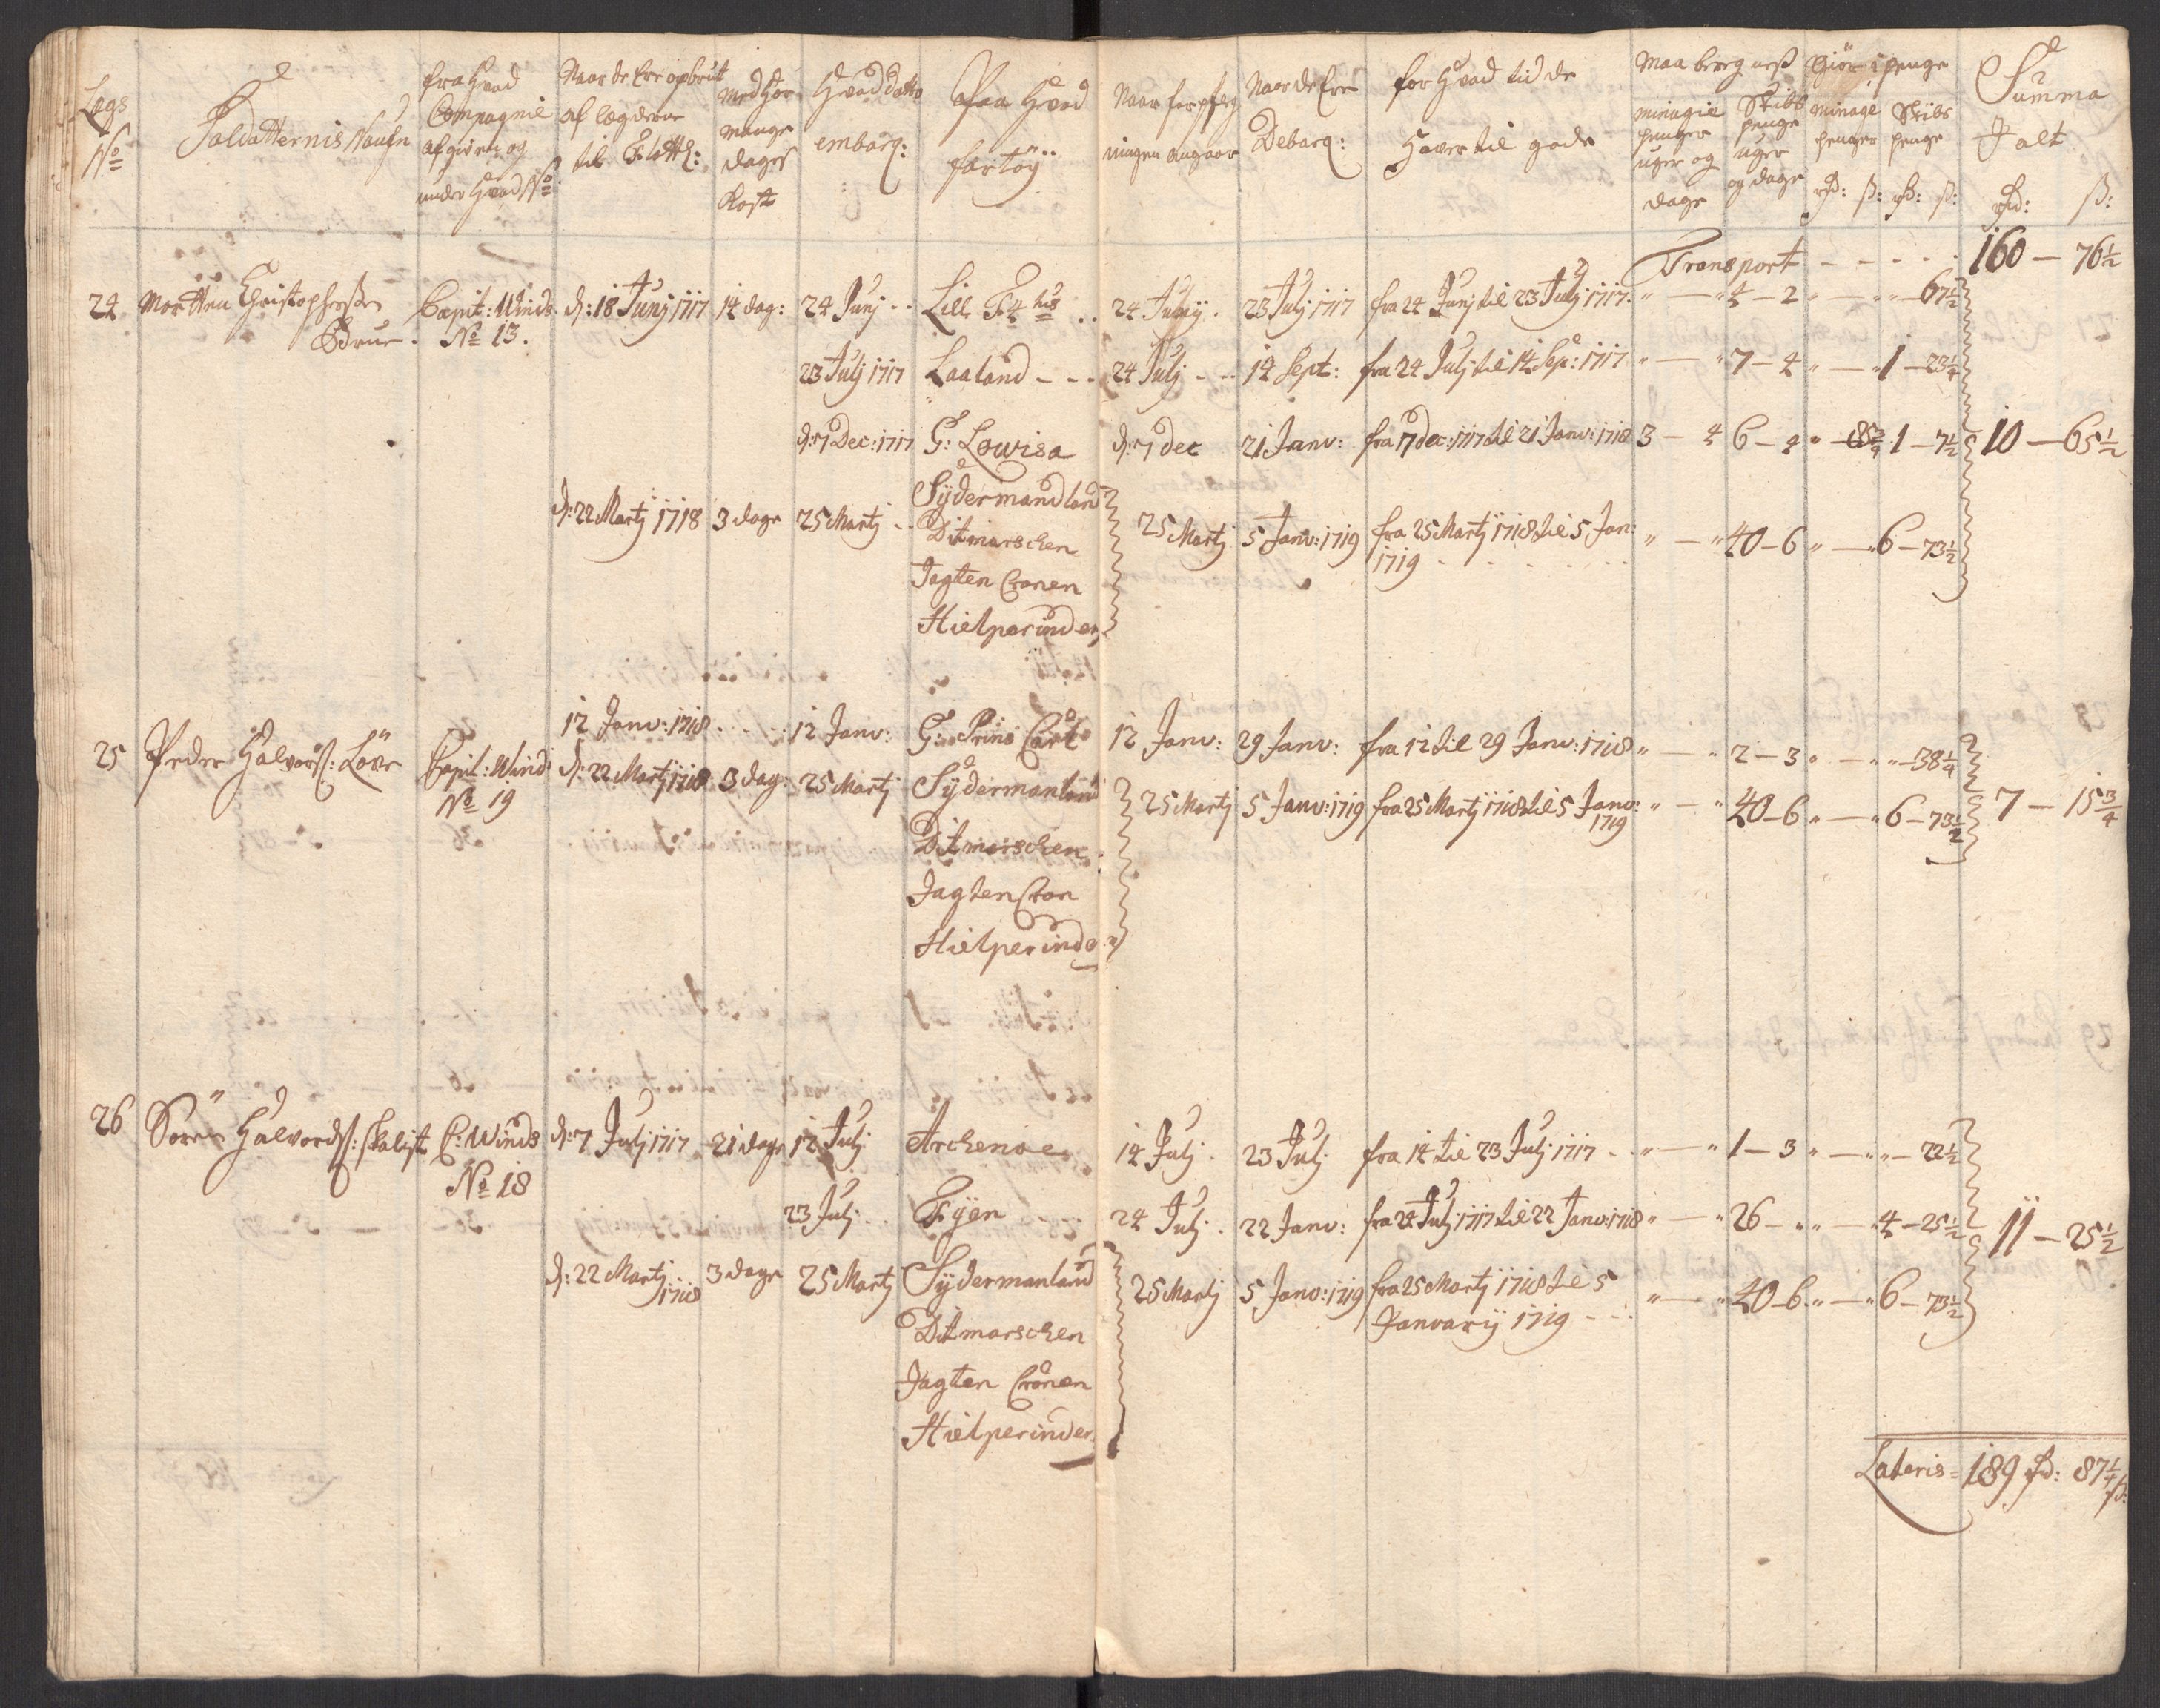 Lægs
No
Soldatternis Naufn
fra Hvad
Compagnie
afgiven og
under Hvad No
Naar de Ere opbrut
af lægderne
til Flotte:
Med Hor
mange
dages
Kost
Hvad Datto
embarq:
Paa Hvad
fartöÿ
Naar forpfleg
ningen angaar
Naar de Ere
Debarq:
for Hvad tid de
Haver til gode
Maa beregnes
minagie
penger
uger og
dage
Skibs
penge
uger
og dage
Giör i penge
minage
penger
Skibs
penge
rd: ß: rd: ß:
Summa
J alt
Rd: ß:
Transport - - - - - 160 — 76½
24 Mortten Christophersen Capit: Winds d: 18 Junj 1717 14 dag: 24 Junj - - Lill F: 4 24 Junij . 23 Julj 1717 fra 24 Junj til 23 Julj 1717. " — " 4 — 2 " — " " — 67½
Brue . No 13.
23 Julj 1717 Laaland - - - 24 Julj - - 14 Sept: fra 24 Julj til 14 Sep: 1717 " — " 7 — 4 " — " 1 — 23¼
d: 7 Dec: 1717 G: Lowisa d: 7 dec 21 Janv: fra 7 dec: 1717 til 21 Janv: 1718 3 — 4 6 — 4 " — 85¾ 1 — 7½ 10 — 65½
d: 22 Martj 1718 3 dage 25 Martj - - Sÿdermandland 25 Martj 5 Janv: 1719 fra 25 Martj 1718 til 5 Jan: " — " 40 — 6 " — " 6 — 73½
Ditmarschen 1719 - - - - -
Jagten Cronen
Hielperinden
12 Janv: 1718 - - - 12 Janv: G: Prins Carl 12 Janv: 29 Janv: fra 12 til 29 Janv: 1718 " — " 2 — 3 " — " " — 38¼
25 Peder Halvorß: Löve Capit: Winds d: 22 Martj 1718 3 dag: 25 Martj Sÿdermanland 25 Martj 5 Janv: 1719 fra 25 Martj 1718 til 5 Janv: " — " 40 — 6 " — " 6 — 73½ 7 — 15¾
No 19 1719
Ditmarschen
Jagten Cron
Hielperinden
26 Sören Halvordß: C: Winds d: 7 Julj 1717 21 dage 12 Julj Archenoe 14 Julj . 23 Julj fra 14 til 23 Julj 1717 - . " — " 1 — 3 " — " " — 22½
No 18
23 Julj . . Fÿen 24 Julj . 22 Janv: fra 24 Julj 1717 til 22 Janv: 1718 " — " 26 — " " — " 4 — 25½ 11 — 25½
d: 22 Martj 3 dage 25 Martj Sÿdermanland 25 Martj 5 Janv: 1719 fra 25 Martj 1718 til 5 " — " 40 — 6 " — " 6 — 73½
1718 Ditmarschen Januarÿ 1719 - - :
Jagten Cronen
Hielperinden
Lateris = 189 rd: 87¼ ß: